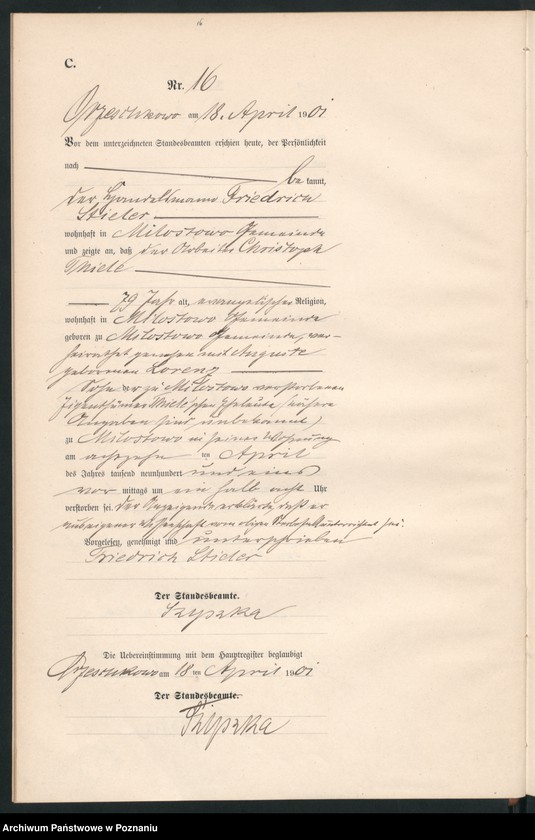 16
C.
Nr. 16
Orzeschkowo am 18. April 1901
Vor dem unterzeichneten Standesbeamten erschien heute, der Persönlichkeit
nach be kannt,
der Friedrich
Stieler
wohnhaft in Milostowo Gemeinde
und zeigte an, daß der Arbeiter Christoph
Thiele
79 Jahr alt, evangelischer Religion,
wohnhaft in Milostowo Gemeinde
geboren zu Milostowo Gemeinde, ver-
heirathet gewesen mit Auguste
geborenen Lorenz
Sohn der zu Milostowo verstorbenen
Eigenthümer Eheleute (nähere
Angaben sind unbekannt)
zu Milostowo in seiner Wohnung
am achtzehn ten April
des Jahres tausend neunhundert und eins
vor mittags um ein halb acht Uhr
verstorben sei. Der Anzeigende erklärte, daß er
aus eigener Wissenschaft vom obigen Sterbefall unterrichtet sei.
Vorgelesen, genehmigt und unterschrieben
Friedrich Stieler
Der Standesbeamte.
Szyszka
Die Uebereinstimmung mit dem Hauptregister beglaubigt
Orzeschkowo am 18 ten April 1901
Der Standesbeamte.
Szyszka
Archiwum Państwowe w Poznaniu